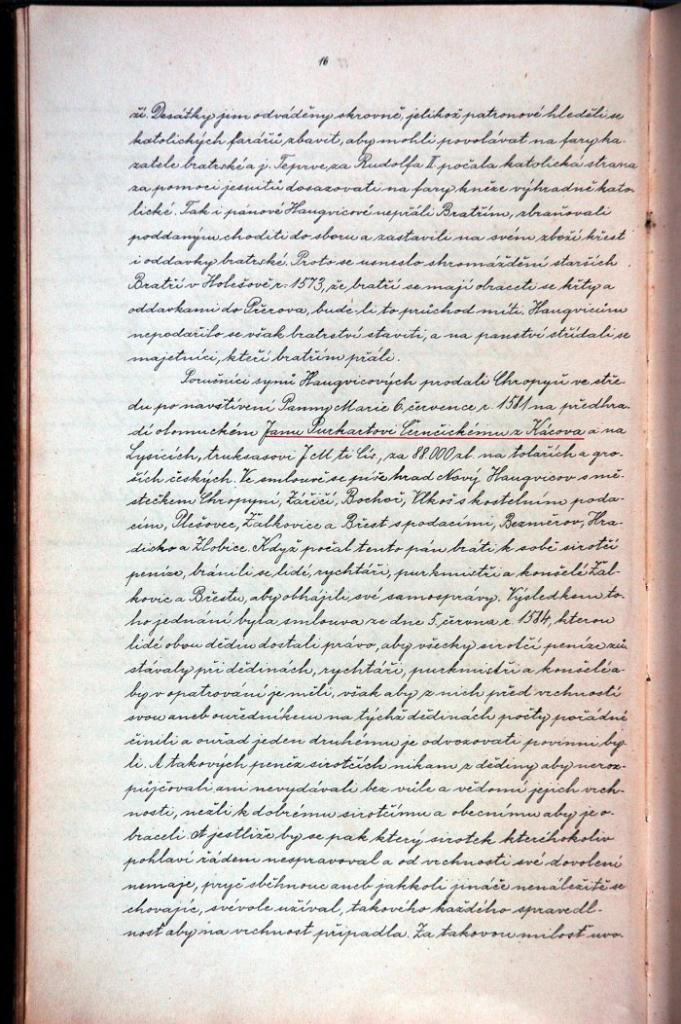 16
ží. Desátky jim odváděny skrovně, jelikož patronové hleděli se
katolických farářů zbavit, aby mohli povolávat na fary ka-
zatele bratrské a j. Teprve za Rudolfa II počala katolická strana
za pomoci jesuitů dosazovati na fary kněze výhradně kato-
lické. Tak i pánové Haugvicové nepřáli Bratřím, zbraňovali
poddaným choditi do sboru a zastavili na svém zboží křest
i oddavky bratrské. Proto se usneslo shromáždění starších
Bratří v Holešově r. 1573, že bratří se mají obraceti se křty a
oddavkami do Přerova, bude-li to průchod míti. Haugvicům
nepodařilo se však bratrství staviti, a na panství střídali se
majetníci, kteří bratřím přáli.
Poručníci synů Haugvicových prodali Chropyň ve stře-
du po navštívení Panny Marie 6. července r. 1581 na předhra-
dí olomuckém Janu Purkartovi Črnčickému z Kácova a na
Lysicích, truksasovi J. M. ti Cís., za 88.000 zl. na tolařích a gro-
ších českých. Ve smlouvě se píše hrad Nový Haugvicov s mě-
stečkem Chropyní, Záříčí, Bochoř, Vlkoš s kostelním poda-
cím, Plešovec, Žalkovice a Břest s podacími, Bezměrov, Hra-
disko a Zlobice. Když počal tento pán bráti k sobě sirotčí
peníze, bránili se lidé, rychtáři, purkmistři a konšelé Žal-
kovic a Břestu, aby obhájili své samosprávy. Výsledkem to-
ho jednání byla smlouva ze dne 5. června r. 1584, kterou
lidé obou dědin dostali právo, aby všecky sirotčí peníze zů-
stávaly při dědinách, rychtáři, purkmistři a konšelé a-
by v opatrování je měli, však aby z nich před vrchností
svou aneb ouředníkem na týchž dědinách počty pořádně
činili a ouřad jeden druhému je odvozovati povinni by-
li. A takových peněz sirotčích nikam z dědiny aby neroz-
půjčovali ani nevydávali bez vůle a vědomí jejich vrch-
nosti, nežli k dobrému sirotčímu a obecnímu aby je o-
braceli. A jestliže by se pak který sirotek kteréhokoliv
pohlaví řádem nespravoval a od vrchnosti své dovolení
nemaje, pryč sběhnouc aneb jakkoli jináče nenáležitě se
chovajíc, svévole užíval, takového každého spravedl-
nost aby na vrchnost připadla. Za takovou milost uvo-